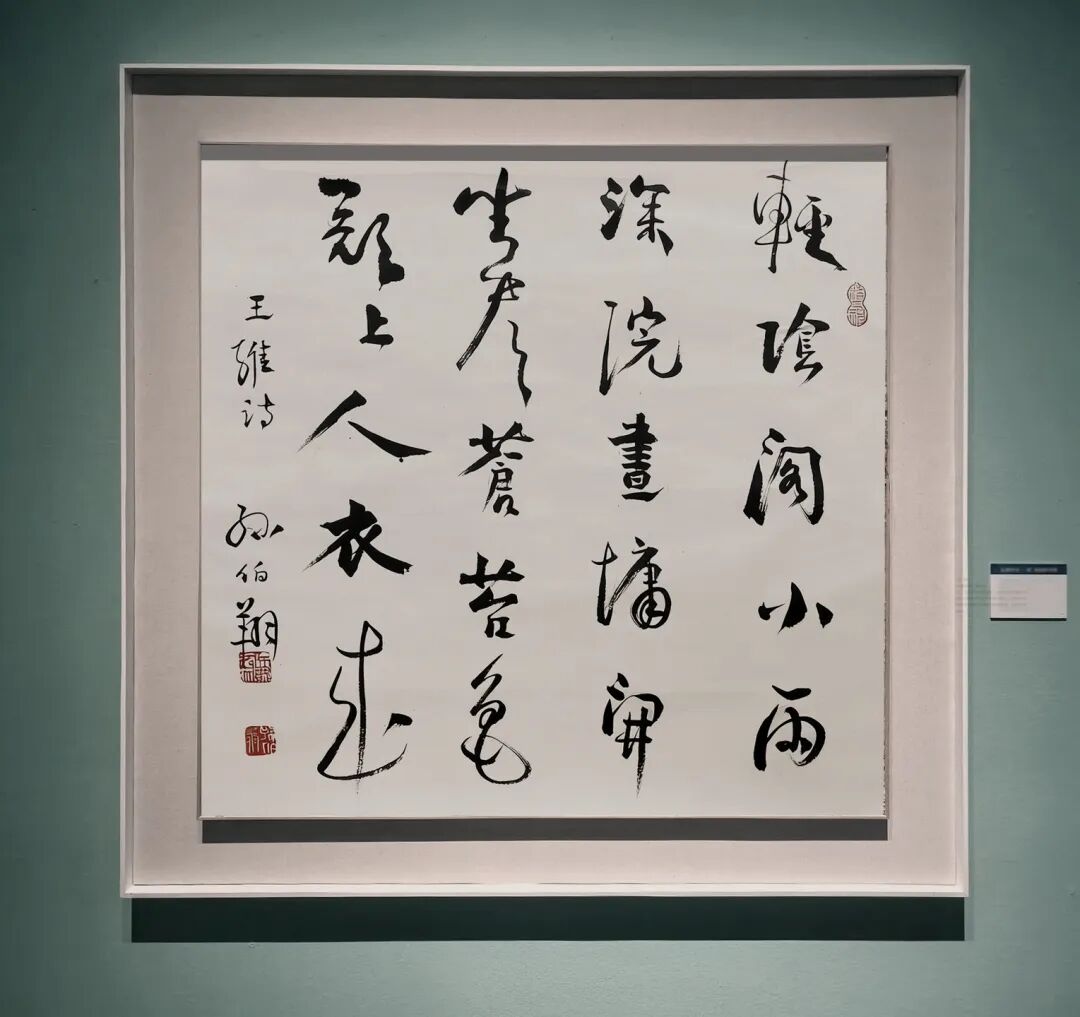 輕陰閣小雨
深院晝慵開
坐看蒼苔色
欲上人衣來
王維詩 孫伯翔